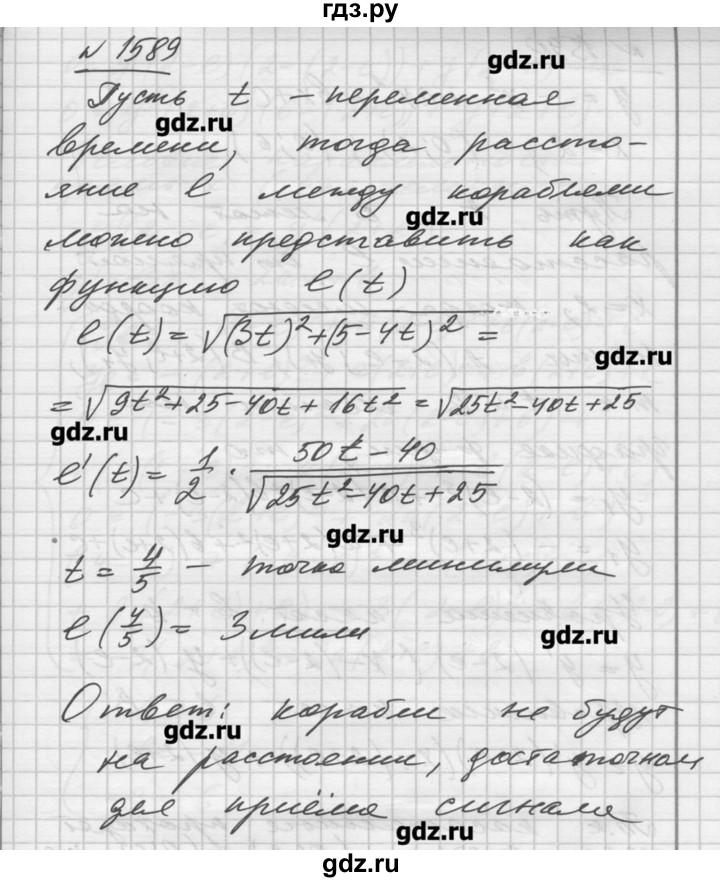 гдз.ру
№ 1589
gdz.ru
Пусть t – переменная
gdz.ru
времени, тогда рассто-
яние l между кораблями
gdz.ru
можно представить как
функцию l(t)
l(t) = √((3t)²+(5-4t)²) =
gdz.ru
= √(9t²+25-40t+16t²) = √(25t²-40t+25)
gdz.ru
l'(t) = 1/2 · (50t-40)/√(25t²-40t+25)
gdz.ru
t = 4/5 – точка минимума
l(4/5) = 3 мили
gdz.ru
Ответ: корабли не будут
gdz.ru
на расстоянии, достаточном
для приёма сигнала
gdz.ru
gdz.ru